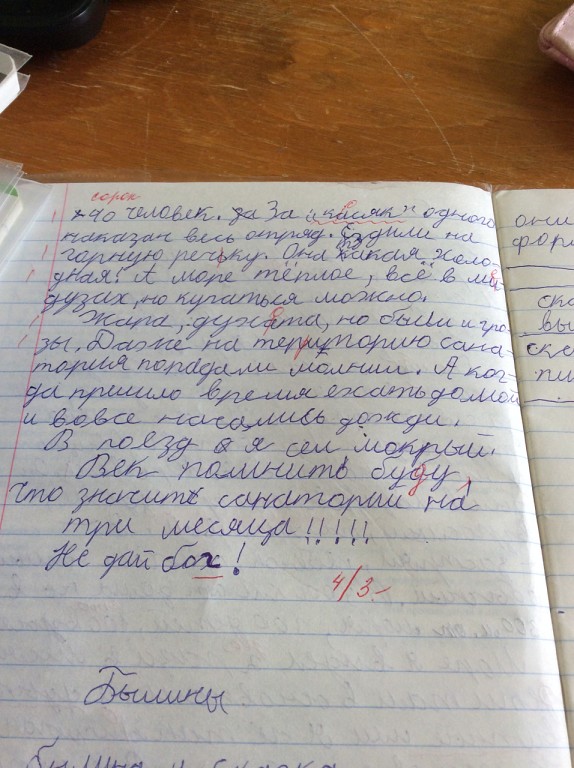 сорок
40 человек. За „касяк" одного
наказан весь отряд. Ездили на
горную речьку. Она такая холо-
дная! А море тёплое, всё в ми
дузах, но купаться можно.
Жара, духата, но были и гро-
зы. Даже на територию сана-
тория попадали молнии. А ког-
да пришло время ехать домой
и вовсе начались дожди.
В поезд я сел мокрый.
Век помнить буду,
что значить санаторий на
три месяца!!!!!
Не дай бох!
4/3-
Былины
былина и сказка
они
форм
ска
вы
ске